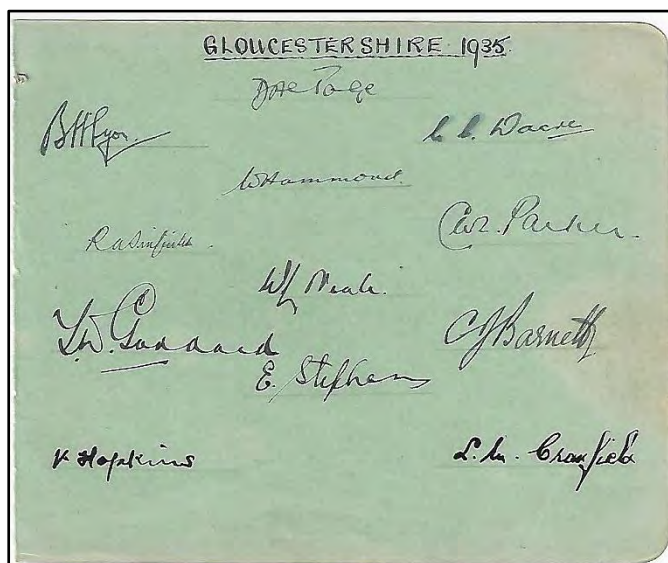 GLOUCESTERSHIRE 1935.
DAC Page
BH Lyon.
C. C. Dacre
W Hammond.
R A Sinfield.
C W L. Parker.
W L Neale.
T. W. Goddard
C J Barnett
E. Stephens
V Hopkins
L. M. Cranfield